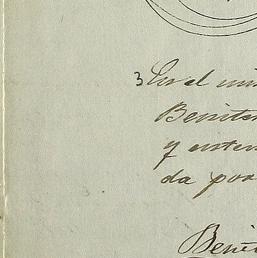 3 En el mis
Benite
y enten
da por
Beni